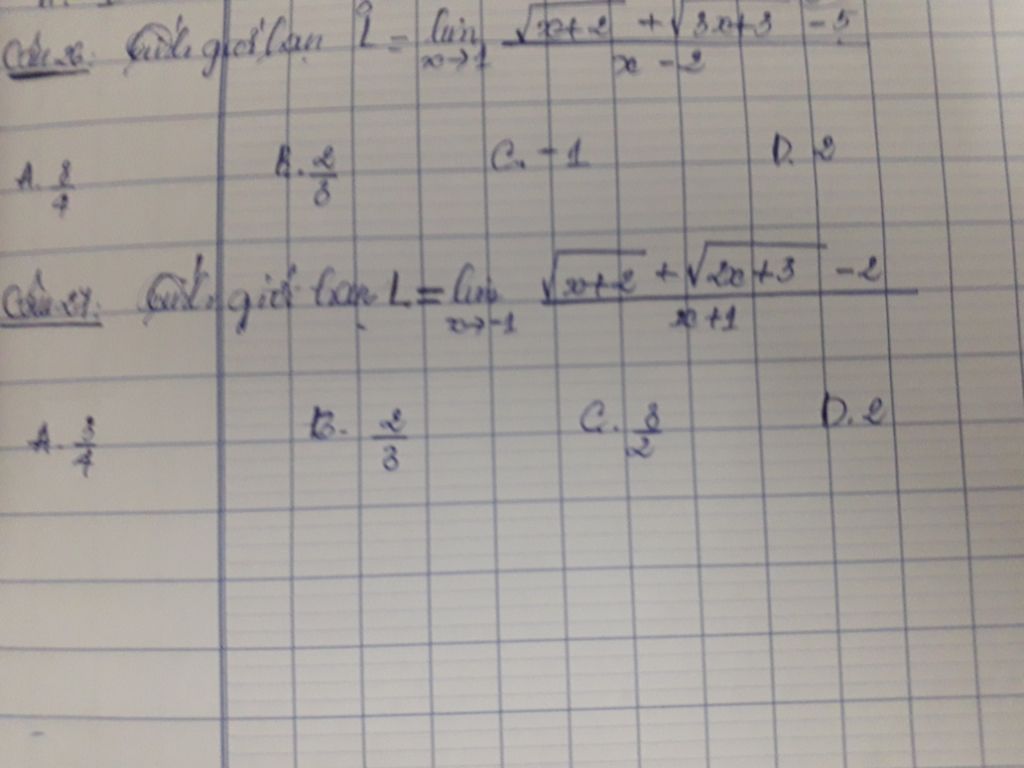 Câu 26: Tính giới hạn L = lim x→1 (√(x+2) + √(3x+3) - 5)/(x - 2)
A. 3/4 B. 2/3 C. -1 D. 2
Câu 27: Tính giới hạn L = lim x→-1 (√(x+2) + √(2x+3) - 2)/(x+1)
A. 3/4 B. 2/3 C. 3/2 D. 2